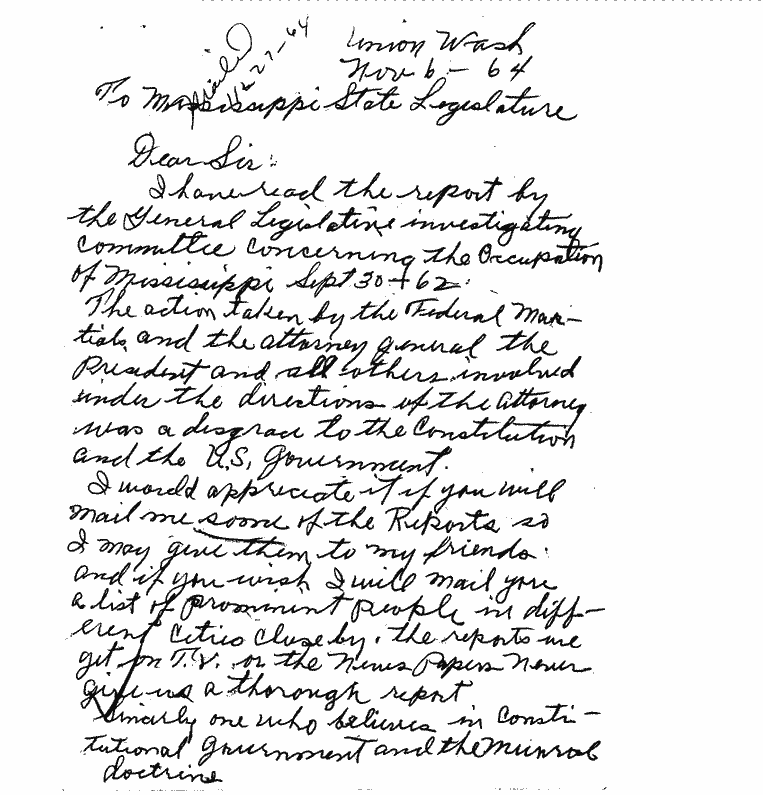 Mailed
12-27-64
Union Wash
Nov 6 - 64
To Mississippi State Legislature
Dear Sir:
I have read the report by
the General Legislative investigating
committee concerning the Occupation
of Mississippi Sept 30 - 62.
The action taken by the Federal Mar-
tials and the attorney general the
President and all others involved
under the directions of the Attorney
was a disgrace to the Constitution
and the U.S. Government.
I would appreciate it if you will
mail me some of the Reports so
I may give them to my friends.
and if you wish I will mail you
a list of prominent people in diff-
erent Cities close by. the reports we
get on T.V. or the News Papers never
give us a thorough report
Sincarly one who believes in Consti-
tutional Government and the Munroe
doctrine